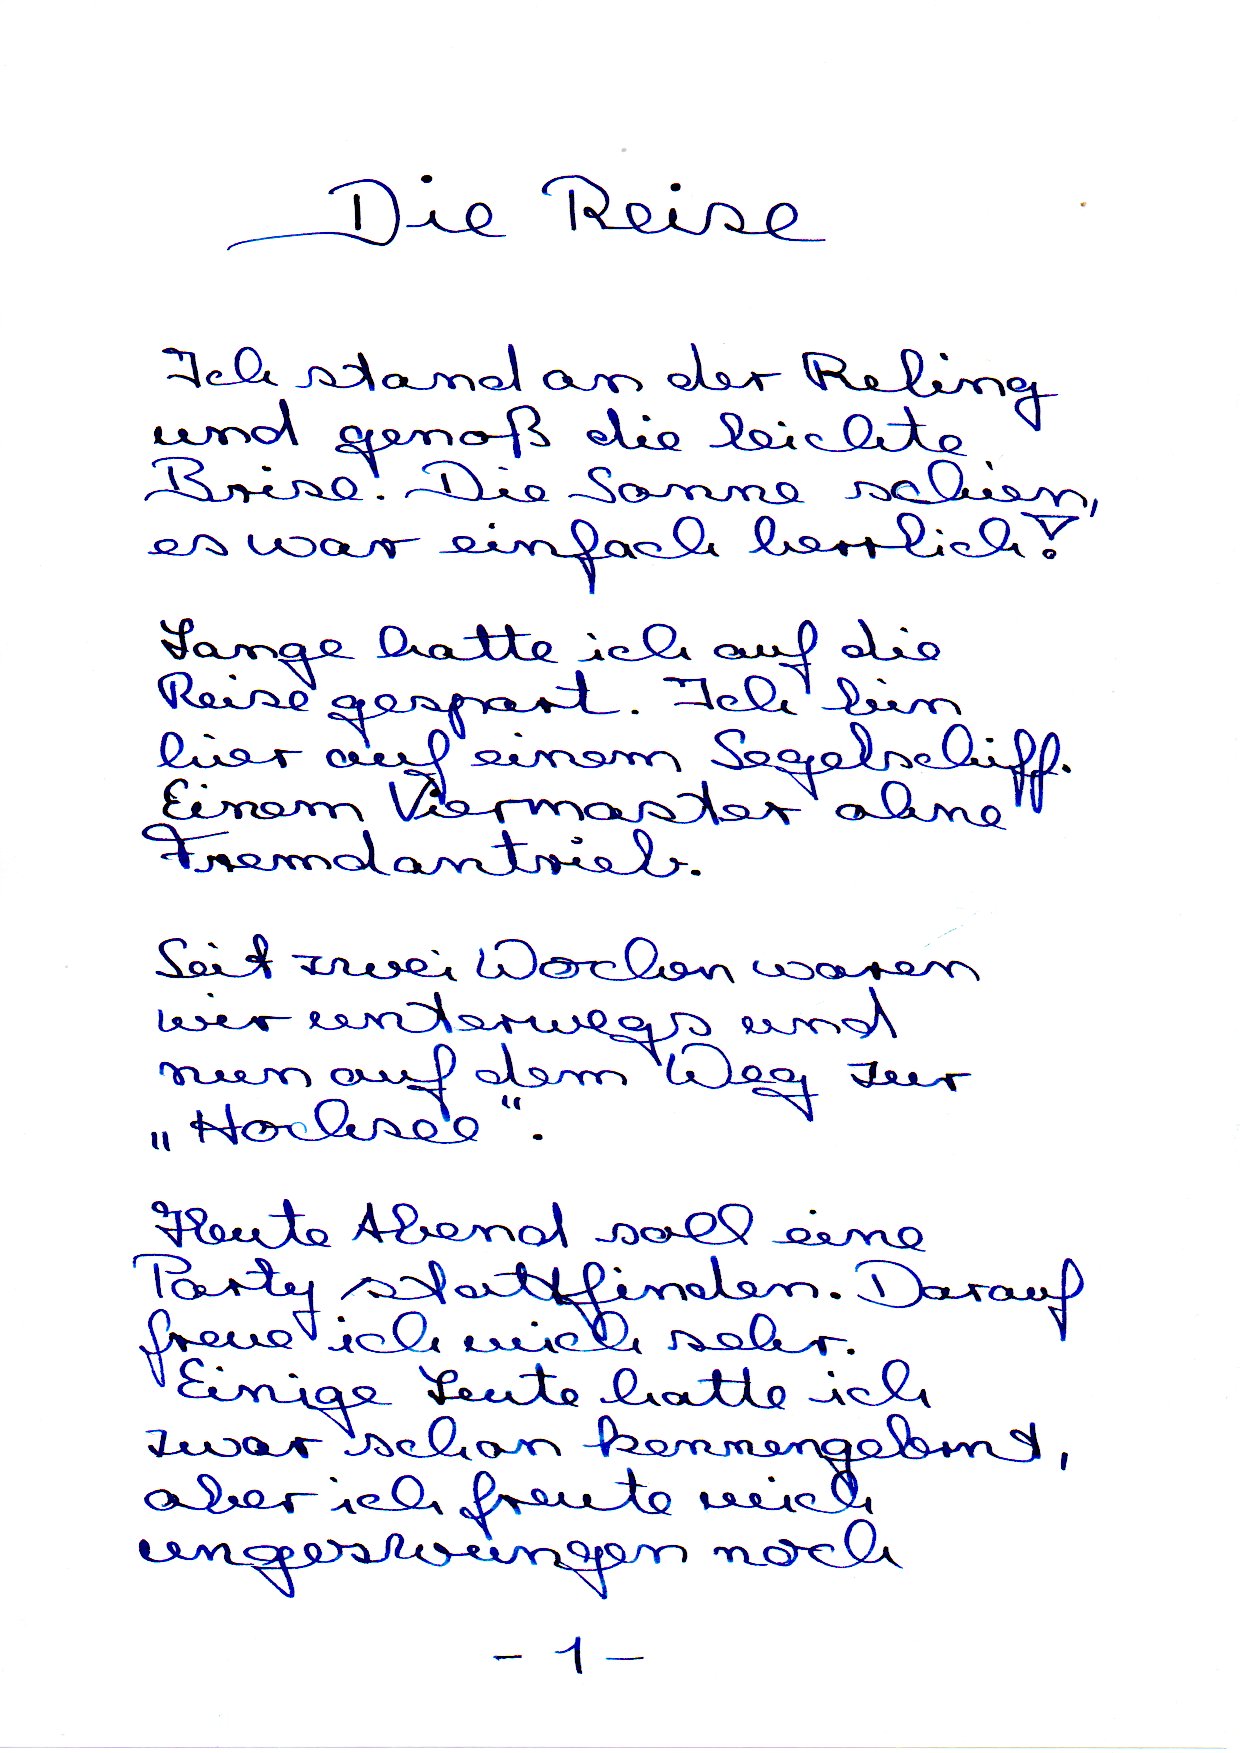 Die Reise
Ich stand an der Reling
und genoß die leichte
Brise. Die Sonne schien,
es war einfach herrlich!
Lange hatte ich auf die
Reise gespart. Ich bin
hier auf einem Segelschiff.
Einem Viermaster ohne
Fremdantrieb.
Seit zwei Wochen waren
wir unterwegs und
nun auf dem Weg zur
„Hochsee“.
Heute Abend soll eine
Party stattfinden. Darauf
freue ich mich sehr.
Einige Leute hatte ich
zwar schon kennengelernt,
aber ich freute mich
ungezwungen noch
- 1 -